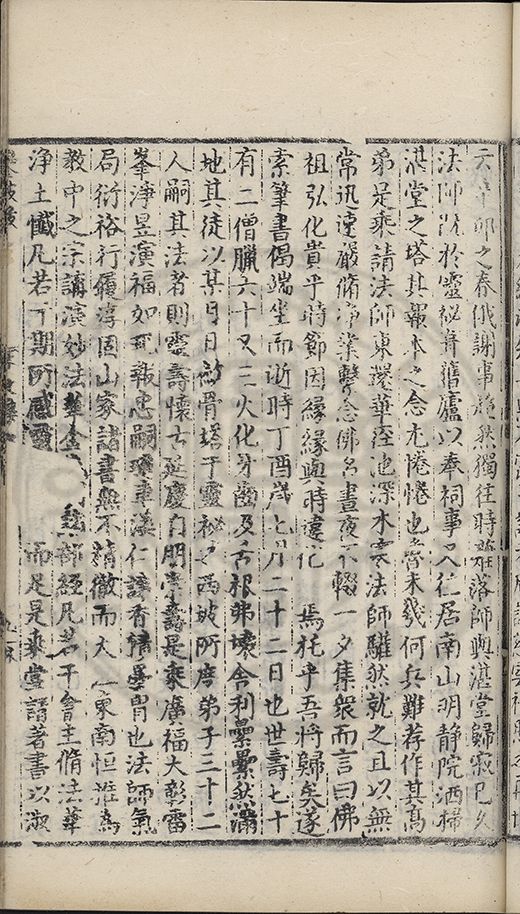 辛卯之春俄謝事飄然獨往時薙落師與湛堂歸寂已久
法師既於靈祕葺舊廬以奉祠事又往居南山明靜院洒掃
湛堂之塔其報本之念尤惓惓也曾未幾何兵難荐作其高
弟是乘請法師東還華徑池深木寒法師驩然就之且以無
常迅速嚴脩淨業繫念佛名晝夜不輟一夕集衆而言曰佛
祖弘化貴乎時節因緣緣與時違化 焉托乎吾將歸矣遂
索筆書偈端坐而逝時丁酉歲七月二十二日也世壽七十
有二僧臘六十又二火化牙齒及舌根弗壞舍利纍纍然滿
地其徒以某月日 骨塔于靈祕之西坡所度弟子三十二
人嗣其法者則靈壽懷古延慶自朋崇壽是乘廣福大彰雷
峯淨昱演福如玘報忠嗣璡車溪仁讓香積曇冑也法師氣
局衍裕行履淳固山家諸書無不精徹而大 東南恒推為
教中之宗講演妙法華金 諸部經凡若干會主脩法華
淨土懺凡若干期所感 而足是乘嘗請著書以淑